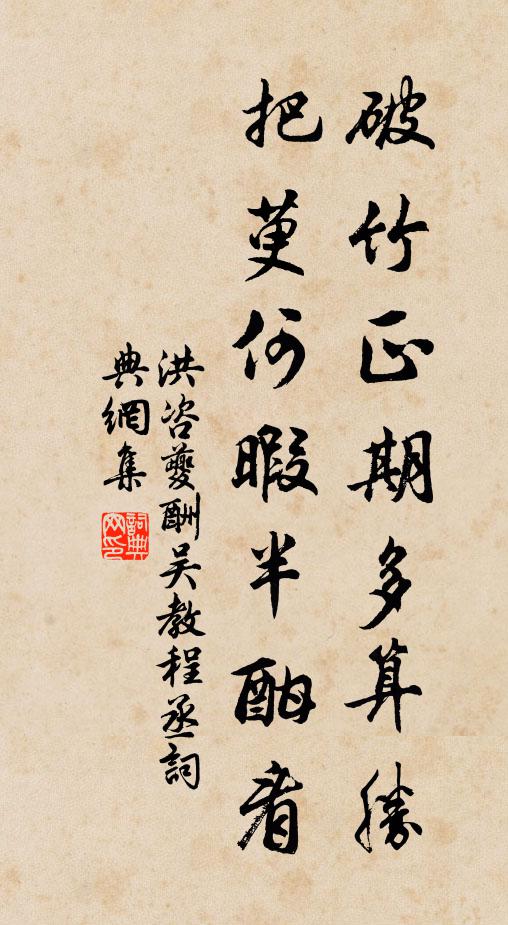 破竹正期多算勝
把萸何暇半酣看
洪咨夔酬吴教程丞詞
典網集
詞典網印